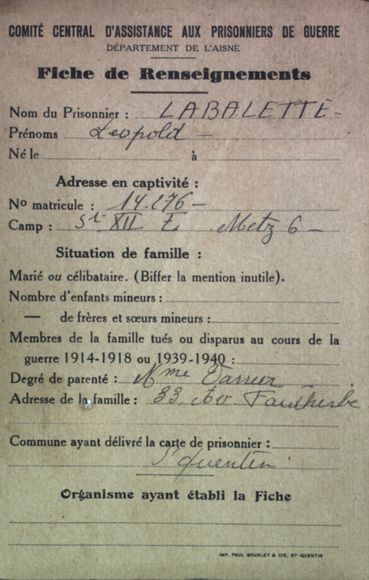 COMITÉ CENTRAL D'ASSISTANCE AUX PRISONNIERS DE GUERRE
DÉPARTEMENT DE L'AISNE
Fiche de Renseignements
Nom du Prisonnier : LABALETTE -
Prénoms Leopold -
Né le à
Adresse en captivité :
No matricule : 14.276 -
Camp : St XII E. Metz 6 -
Situation de famille :
Marié ou célibataire. (Biffer la mention inutile).
Nombre d'enfants mineurs :
— de frères et sœurs mineurs :
Membres de la famille tués ou disparus au cours de la
guerre 1914-1918 ou 1939-1940 :
Degré de parenté : Mme
Adresse de la famille : 33 Faidherbe
Commune ayant délivré la carte de prisonnier :
St Quentin
Organisme ayant établi la Fiche
IMP. PAUL BOURLET & CIE, ST-QUENTIN